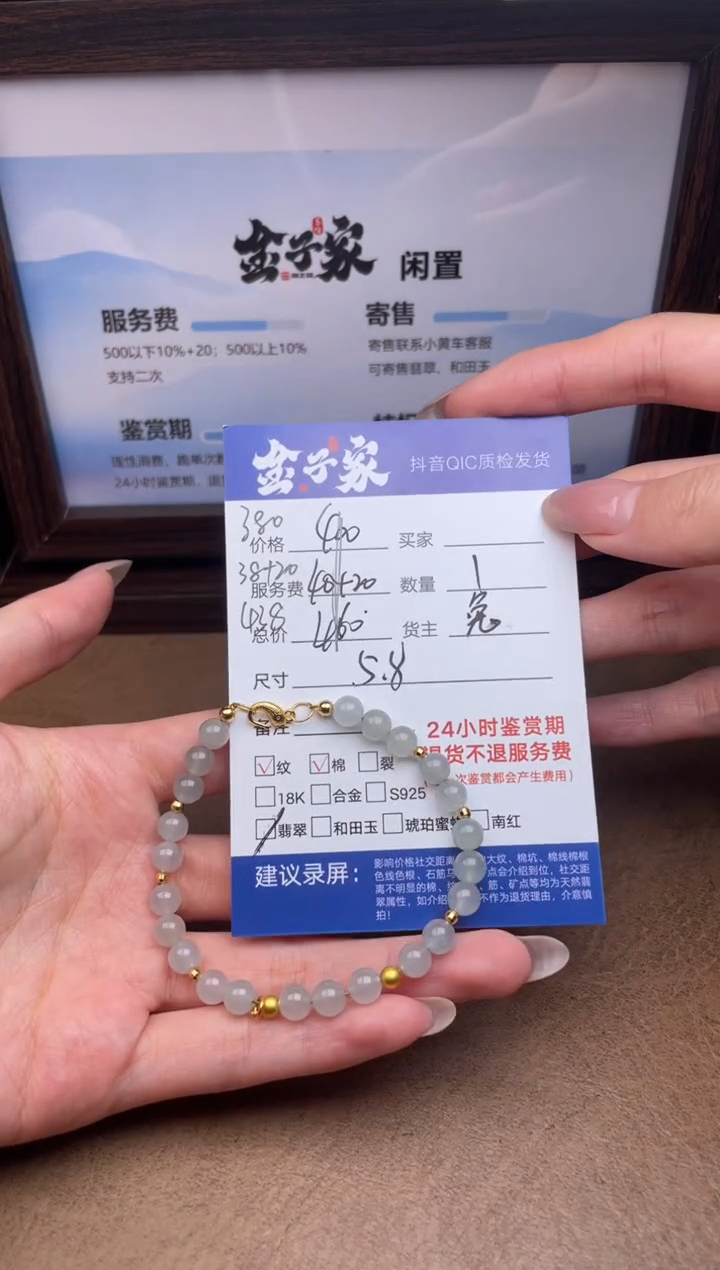 金子家 闲置
服务费
500以下10%+20；500以上10%
支持二次
寄售
寄售联系小黄车客服
可寄售翡翠、和田玉
鉴赏期
24小时鉴赏期
金子家 抖音QIC质检发货
380
价格 400 买家
38+20
服务费 40+20 数量 1
438
总价 460 货主 兔
尺寸 5.8
备注
24小时鉴赏期
退货不退服务费
次鉴赏都会产生费用）
纹 棉 裂
18K 合金 S925
翡翠 和田玉 琥珀蜜 南红
建议录屏：
影响价格社交距离 大纹、棉坑、棉线棉根
色线色根、石筋 点会介绍到位，社交距
离不明显的棉、 筋、矿点等均为天然翡
翠属性，如介绍 不作为退货理由，介意慎
拍！